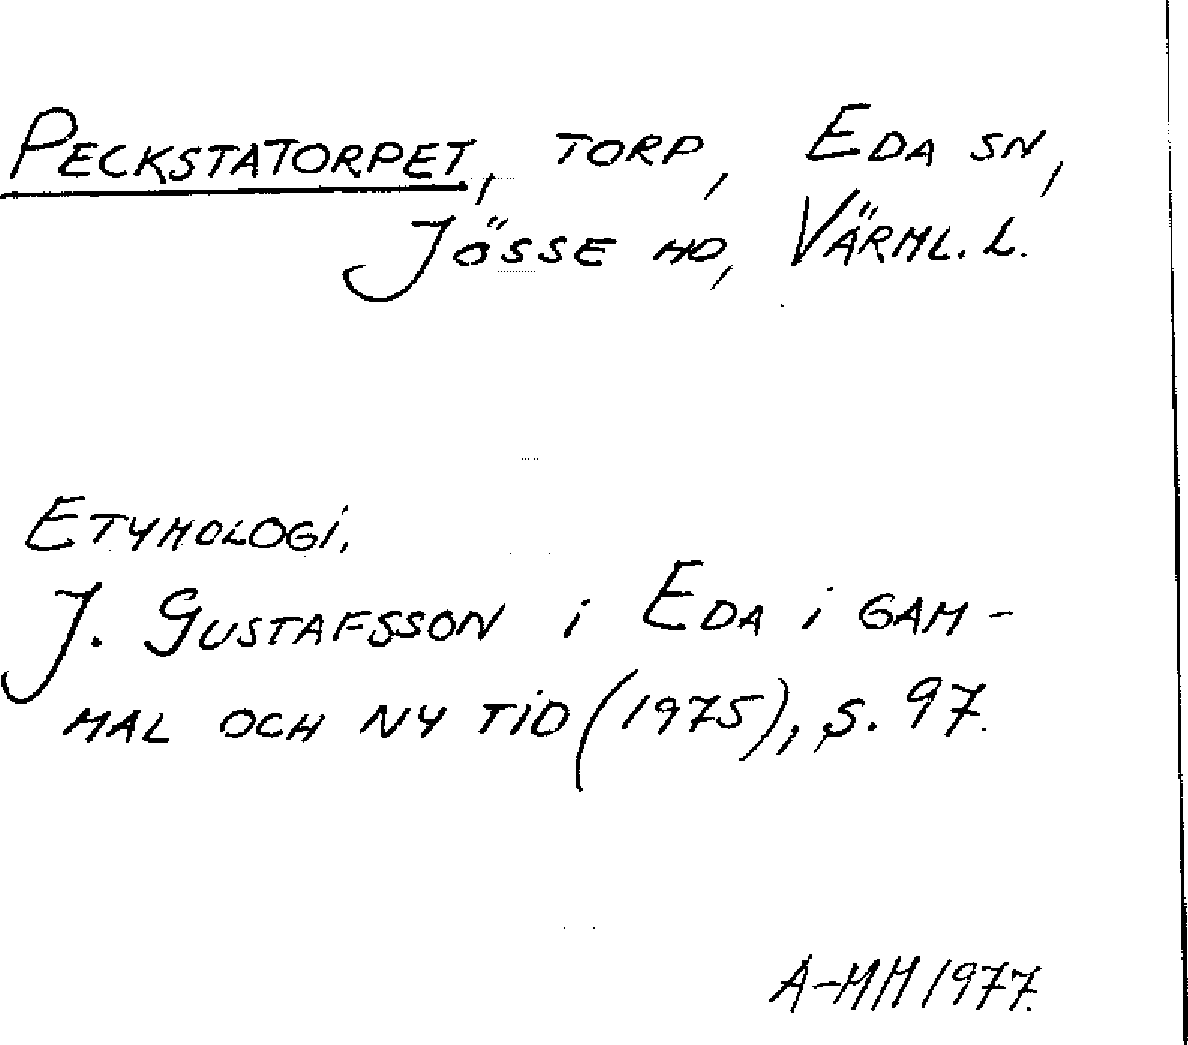 PECKSTATORPET, TORP, EDA SN,
JÖSSE HD, VÄRML. L.
ETYMOLOGI.
J. GUSTAFSSON i EDA i GAM-
MAL OCH NY TID (1975), S. 97.
A-MM 1977.